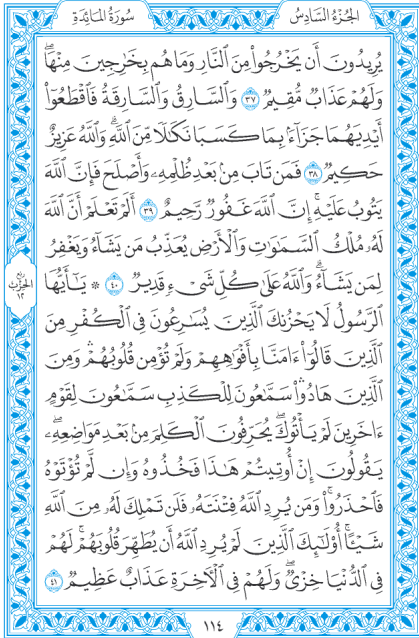 الجُزْءُ السَّادِسُ
سُورَةُ المَائِدَةِ
يُرِيدُونَ أَن يَخْرُجُوا۟ مِنَ ٱلنَّارِ وَمَا هُم بِخَٰرِجِينَ مِنْهَاۖ
وَلَهُمْ عَذَابٌ مُّقِيمٌ ٣٧ وَٱلسَّارِقُ وَٱلسَّارِقَةُ فَٱقْطَعُوٓا۟
أَيْدِيَهُمَا جَزَآءَۢ بِمَا كَسَبَا نَكَٰلًا مِّنَ ٱللَّهِۗ وَٱللَّهُ عَزِيزٌ
حَكِيمٌ ٣٨ فَمَن تَابَ مِنۢ بَعْدِ ظُلْمِهِۦ وَأَصْلَحَ فَإِنَّ ٱللَّهَ
يَتُوبُ عَلَيْهِۚ إِنَّ ٱللَّهَ غَفُورٌ رَّحِيمٌ ٣٩ أَلَمْ تَعْلَمْ أَنَّ ٱللَّهَ
لَهُۥ مُلْكُ ٱلسَّمَٰوَٰتِ وَٱلْأَرْضِ يُعَذِّبُ مَن يَشَآءُ وَيَغْفِرُ
لِمَن يَشَآءُۗ وَٱللَّهُ عَلَىٰ كُلِّ شَىْءٍ قَدِيرٌ ٤٠ ۞ يَٰٓأَيُّهَا
ٱلرَّسُولُ لَا يَحْزُنكَ ٱلَّذِينَ يُسَٰرِعُونَ فِى ٱلْكُفْرِ مِنَ
ٱلَّذِينَ قَالُوٓا۟ ءَامَنَّا بِأَفْوَٰهِهِمْ وَلَمْ تُؤْمِن قُلُوبُهُمْۛ وَمِنَ
ٱلَّذِينَ هَادُوا۟ۛ سَمَّٰعُونَ لِلْكَذِبِ سَمَّٰعُونَ لِقَوْمٍ
ءَاخَرِينَ لَمْ يَأْتُوكَۖ يُحَرِّفُونَ ٱلْكَلِمَ مِنۢ بَعْدِ مَوَاضِعِهِۦۖ
يَقُولُونَ إِنْ أُوتِيتُمْ هَٰذَا فَخُذُوهُ وَإِن لَّمْ تُؤْتَوْهُ
فَٱحْذَرُوا۟ۚ وَمَن يُرِدِ ٱللَّهُ فِتْنَتَهُۥ فَلَن تَمْلِكَ لَهُۥ مِنَ ٱللَّهِ
شَيْـًٔاۚ أُو۟لَٰٓئِكَ ٱلَّذِينَ لَمْ يُرِدِ ٱللَّهُ أَن يُطَهِّرَ قُلُوبَهُمْۚ لَهُمْ
فِى ٱلدُّنْيَا خِزْىٌۖ وَلَهُمْ فِى ٱلْءَاخِرَةِ عَذَابٌ عَظِيمٌ ٤١
رُبْعُ
الحِزْبِ
١٢
١١٤